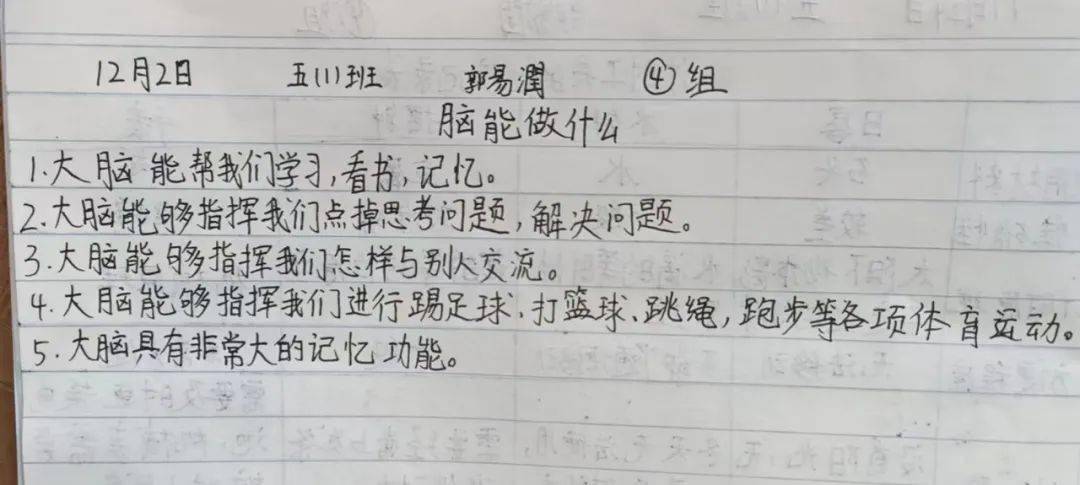 12月2日 五(1)班 郭易潤 ④组
脑能做什么
1.大脑能帮我们学习,看书,记忆。
2.大脑能够指挥我们点掉思考问题,解决问题。
3.大脑能够指挥我们怎样与别人交流。
4.大脑能够指挥我们进行踢足球、打篮球、跳绳,跑步等各项体育运动。
5.大脑具有非常大的记忆功能。